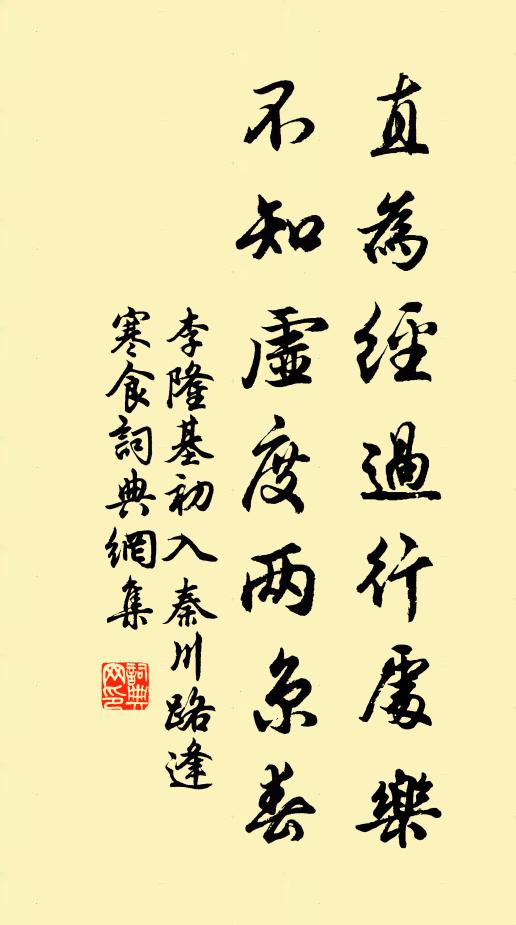 直為經過行處樂
不知虛度两京春
李隆基初入秦川路逢
寒食詞典網集
詞典網印